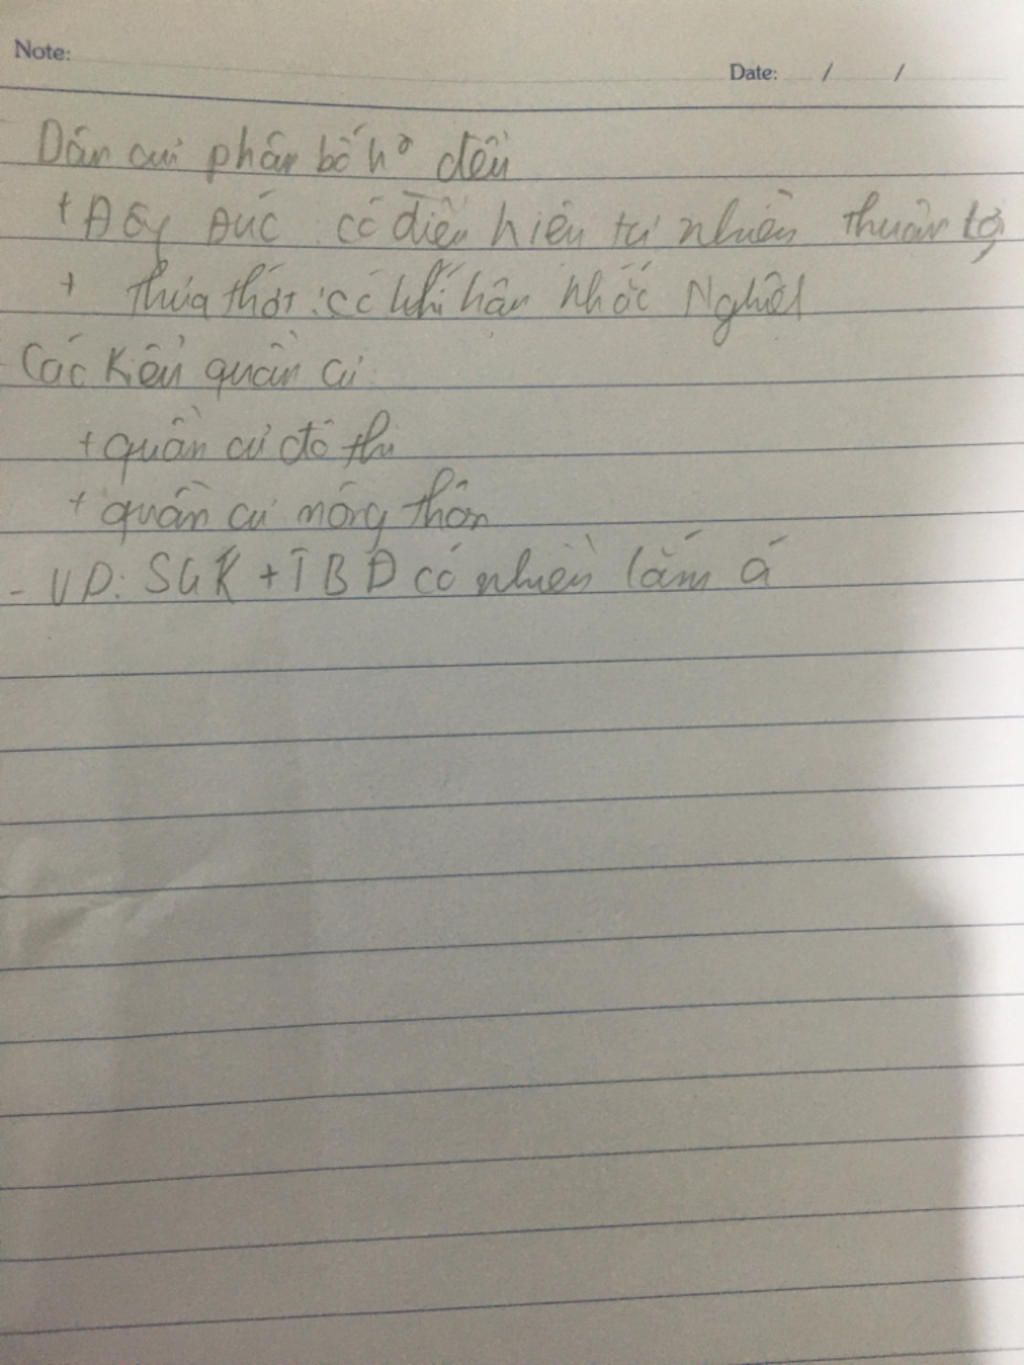 Note:
Date: / /
Dân cư phân bố kº đều
+ Đôg Đúc có điều kiện tự nhiên thuận lợi
+ Thưa thớt: có khí hậu khắc Nghiệt
Các kiểu quần cư
+ quần cư đô thị
+ quần cư nông thôn
- VD: SGK + TBĐ có nhiều lắm á